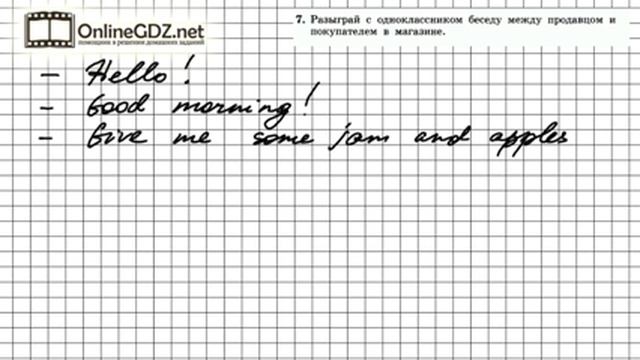 OnlineGDZ.net
помощник в решении домашних заданий
7. Разыграй с одноклассником беседу между продавцом и
покупателем в магазине.
- Hello!
- Good morning!
- Give me some jam and apples